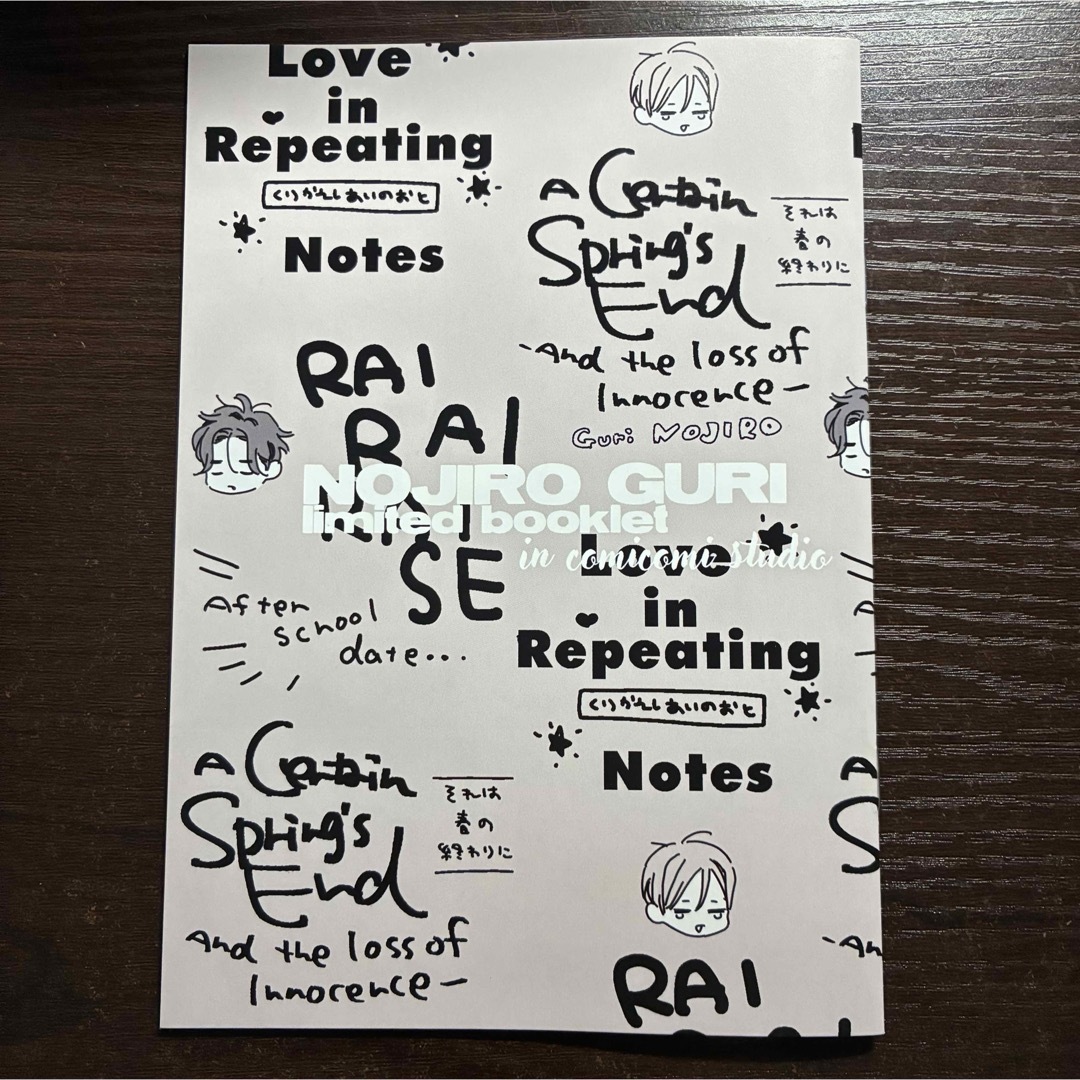 Love
in
Repeating
くりかえしあいのおと
Notes
A Certain
Spring's
End
それは
春の
終わりに
-And the loss of
Innocence-
Guri NOJIRO
RAI
RAI
RAI
SE
NOJIRO GURI
limited booklet
in comicomi studio
After
school
date...
Love
in
Repeating
くりかえしあいのおと
Notes
A Certain
Spring's
End
それは
春の
終わりに
And the loss of
Innocence-
RAI
A
S
-An